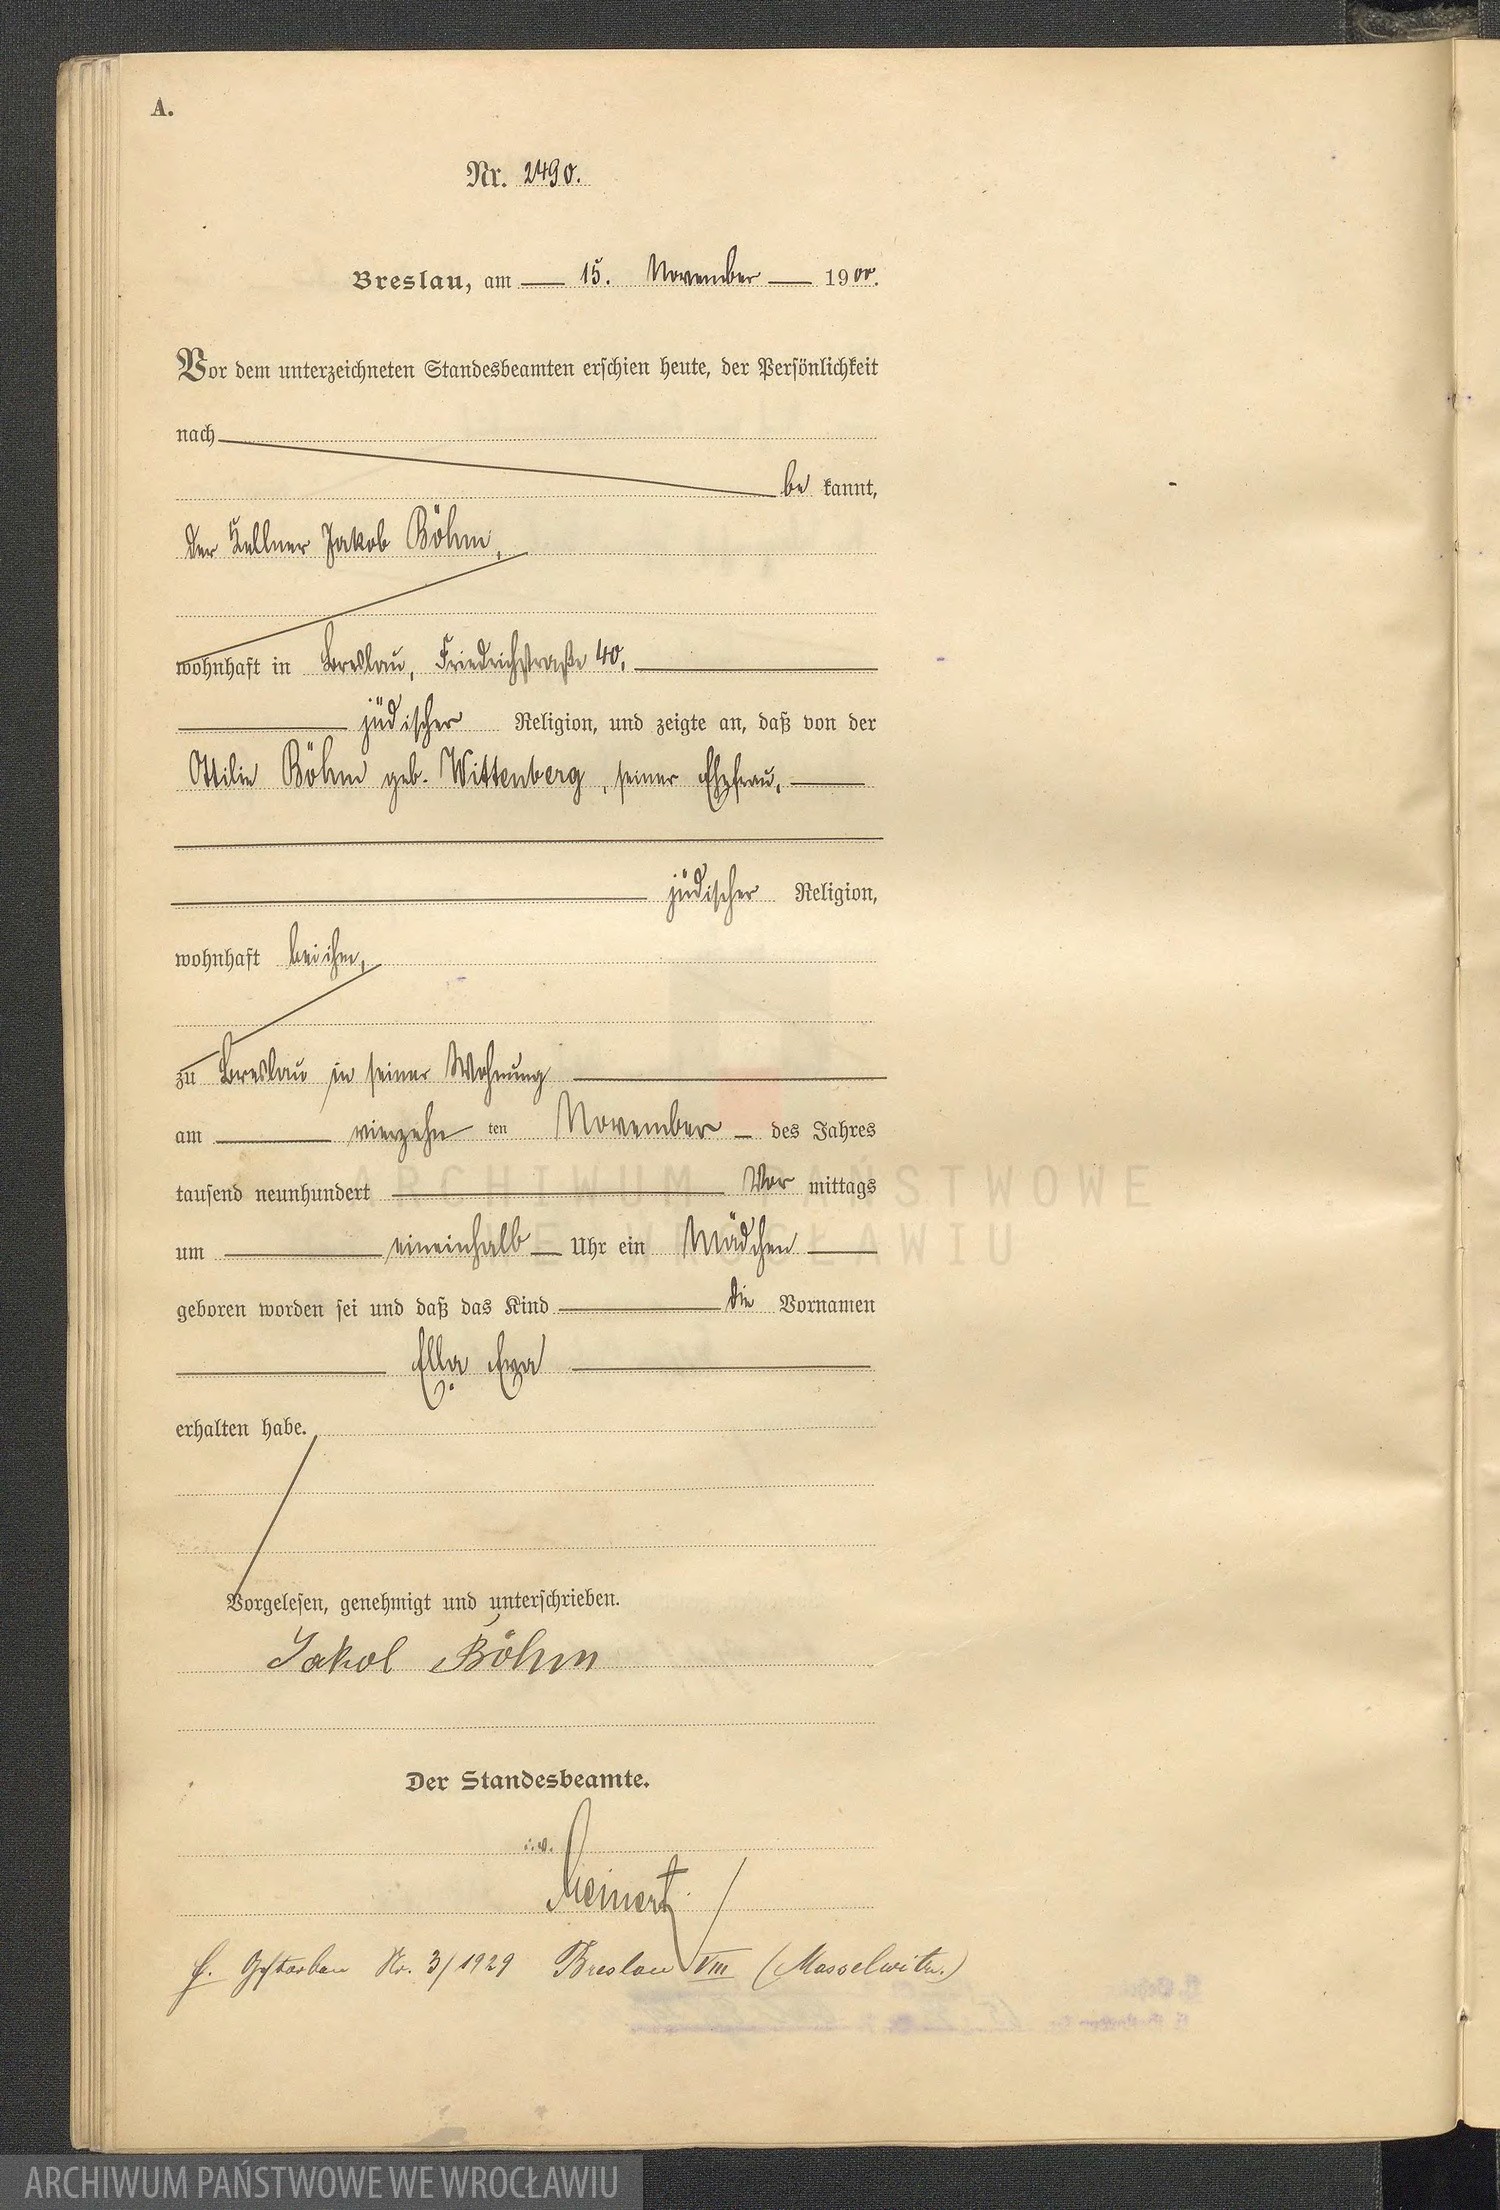 A.
Nr. 2490.
Breslau, am 15. November 1900.
Vor dem unterzeichneten Standesbeamten erschien heute, der Persönlichkeit
nach
be kannt,
der Kellner Jakob Böhm,
wohnhaft in Breslau, Friedrichstraße 40,
jüdischer Religion, und zeigte an, daß von der
Ottilie Böhm geb. Wittenberg, seiner Ehefrau,
jüdischer Religion,
wohnhaft bei ihm,
zu Breslau in seiner Wohnung
am vierzehn ten November des Jahres
tausend neunhundert Vor mittags
um eineinhalb Uhr ein Mädchen
geboren worden sei und daß das Kind die Vornamen
Ella Eva
erhalten habe.
Vorgelesen, genehmigt und unterschrieben.
Jakob Böhm
Der Standesbeamte.
i. v.
Meinert
Gestorben Nr. 3/1929 Breslau VIII (Masselwitz.)
ARCHIWUM PAŃSTWOWE
WE WROCŁAWIU
ARCHIWUM PAŃSTWOWE WE WROCŁAWIU